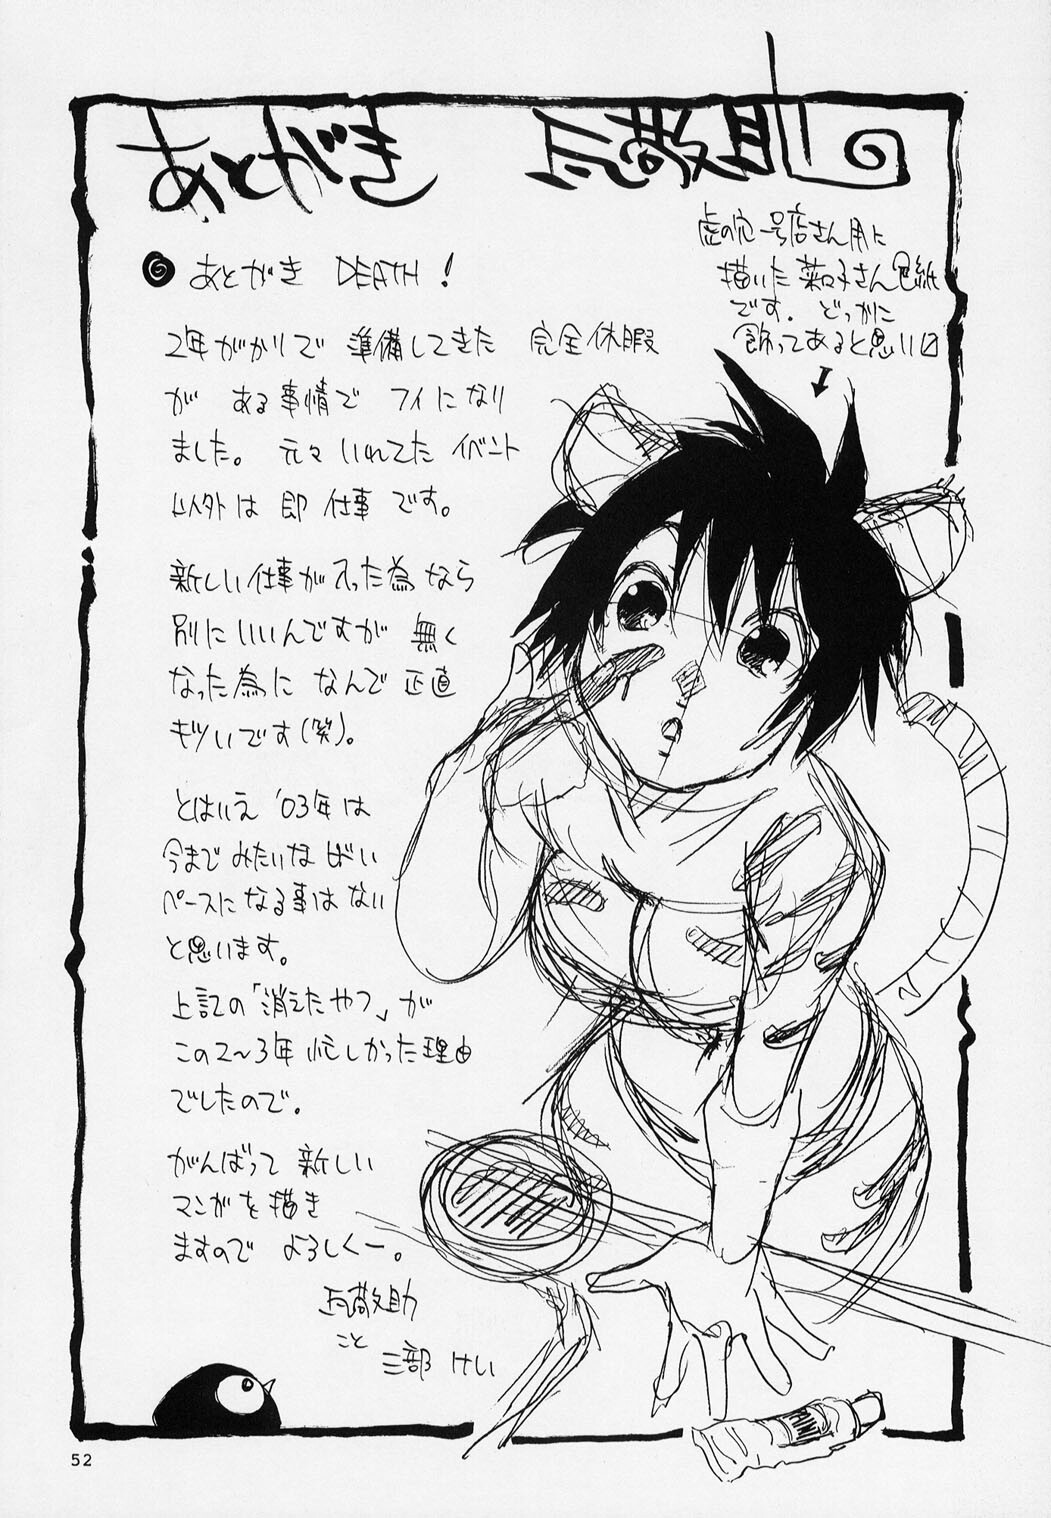 あとがき
瓦敬助
虎の穴一号店さん用に
描いた菜々子さん色紙
です。どっかに
飾ってあると思い〼
あとがき DEATH!
2年がかりで 準備してきた 完全休暇
が ある事情で フイになり
ました。元々いれてた イベント
以外は 即 仕事 です。
新しい仕事が入った為なら
別にいいんですが 無く
なった為に なんで 正直
キツいです(笑)。
とはいえ '03年は
今まで みたいな ばい
ペースに なる事は ない
と思います。
上記の「消えたやつ」が
この2〜3年 忙しかった理由
でしたので。
がんばって 新しい
マンガを 描き
ますので よろしくー。
瓦敬助
こと
三部 けい
52